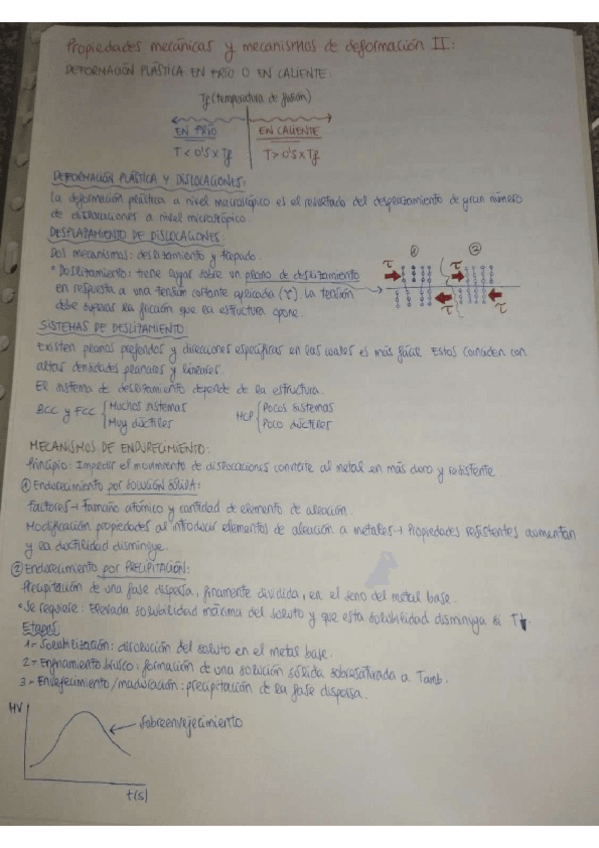 Propiedades mecánicas y mecanismos de deformación II:
DEFORMACIÓN PLÁSTICA EN FRÍO O EN CALIENTE:
Tf (temperatura de fusión)
EN FRÍO
EN CALIENTE
T < 0'5 x Tf
T > 0'5 x Tf
DEFORMACIÓN PLÁSTICA Y DISLOCACIONES:
La deformación plástica a nivel macroscópico es el resultado del desplazamiento de gran número
de dislocaciones a nivel microscópico.
DESPLAZAMIENTO DE DISLOCACIONES:
Dos mecanismos: deslizamiento y trepado.
* Deslizamiento: tiene lugar sobre un plano de deslizamiento
en respuesta a una tensión cortante aplicada (τ). La tensión
debe superar la fricción que la estructura opone.
① ②
τ τ
τ τ
SISTEMAS DE DESLIZAMIENTO
Existen planos preferidos y direcciones específicas en las cuales es más fácil. Estos coinciden con
altas densidades planares y lineales.
El sistema de deslizamiento depende de la estructura.
BCC y FCC { Muchos sistemas
Muy dúctiles
HCP { Pocos sistemas
Poco dúctiles
MECANISMOS DE ENDURECIMIENTO:
Principio: Impedir el movimiento de dislocaciones convierte al metal en más duro y resistente.
① Endurecimiento por SOLUCIÓN SÓLIDA:
Factores → Tamaño atómico y cantidad de elemento de aleación.
Modificación propiedades al introducir elementos de aleación a metales → Propiedades resistentes aumentan
y la ductilidad disminuye.
② Endurecimiento por PRECIPITACIÓN:
Precipitación de una fase dispersa, finamente dividida, en el seno del metal base.
* Se requiere: Elevada solubilidad máxima del soluto y que esta solubilidad disminuya si T↓.
Etapas:
1 = Solubilización: disolución del soluto en el metal base.
2 = Enfriamiento brusco: formación de una solución sólida sobresaturada a Tamb.
3 = Envejecimiento/maduración: precipitación de la fase dispersa.
HV
Sobreenvejecimiento
t(s)